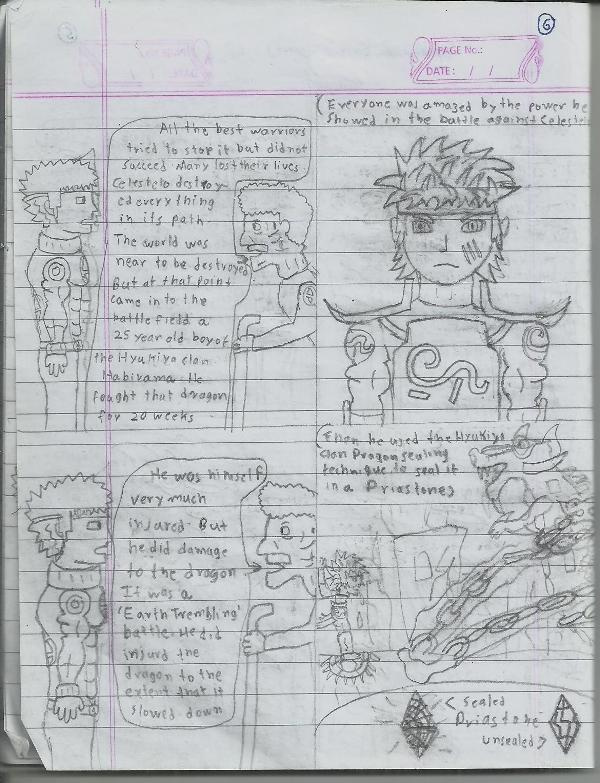 6
PAGE No.:
DATE: / /
All the best warriors
tried to stop it but did not
succeed Many lost their lives
Celestelo destroy-
ed everything
in its path
The world was
near to be destroyed
But at that point
came in to the
battle field a
25 year old boy of
the Hyukiya clan
Habiyama. He
fought that dragon
for 20 weeks
(Everyone was amazed by the power he
showed in the battle against Celeste
He was himself
very much
injured. But
he did damage
to the dragon
It was a
'Earth Trembling'
battle. He did
injurd the
dragon to the
extent that it
slowed down
(Then he used the Hyukiya
clan Dragon sealing
technique to seal it
in a Priastone)
< sealed
Priastone
unsealed >